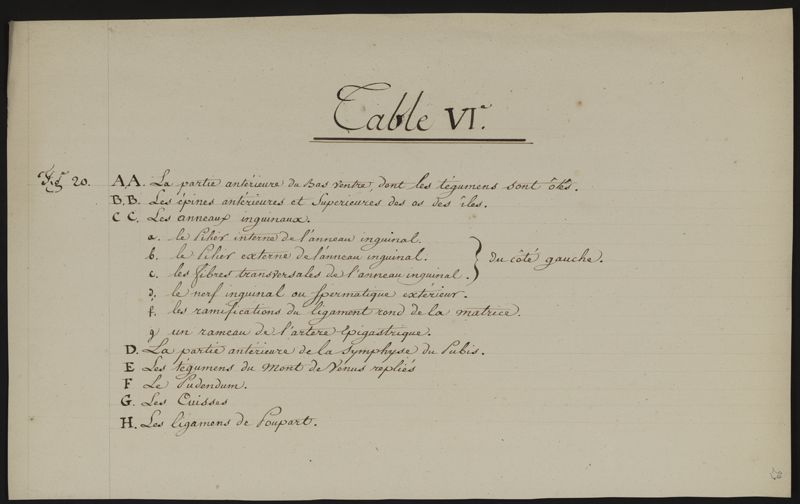 Table VI.e
Fig. 20. A,A. La partie antérieure du Bas Ventre, dont les tégumens sont ôtés.
B,B. Les épines antérieures et Superieures des os des îles.
C C. Les anneaux inguinaux.
a. le Pilier interne de l'anneau inguinal.
b. le Pilier externe de l'anneau inguinal. } du côté gauche.
c. les fibres transversales de l'anneau inguinal.
d. le nerf inguinal ou spermatique extérieur.
f. les ramifications du ligament rond de la matrice.
g un rameau de l'artere Epigastrique.
D. La partie antérieure de la Symphyse du Pubis.
E Les tégumens du Mont de Venus repliés
F Le Pudendum.
G. Les Cuisses
H. Les ligamens de Poupart.